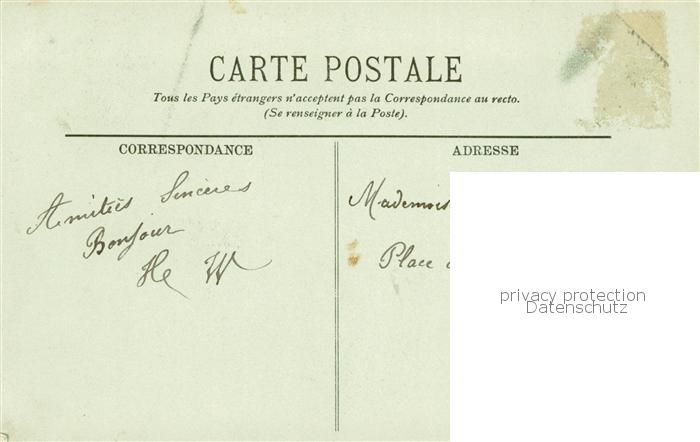 CARTE POSTALE
Tous les Pays étrangers n'acceptent pas la Correspondance au recto.
(Se renseigner à la Poste).
CORRESPONDANCE
ADRESSE
Amitiés Sincères
Bonjour
He W
Mademois
Place
privacy protection
Datenschutz